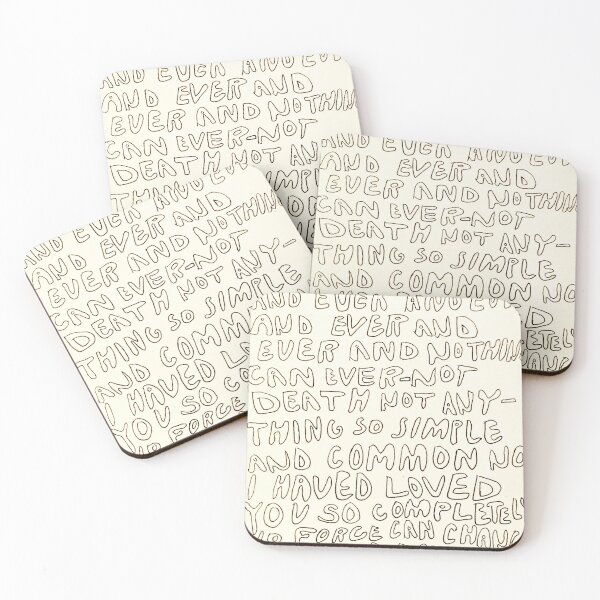 AND EVER AND EVER
AND EVER AND
EVER AND NOTHING
CAN EVER-NOT
DEATH NOT AN
SIMPLE
AND EVER AND EVE
AND EVER AND
EVER AND NOTHING
CAN EVER-NOT
DEATH NOT ANY-
THING SO SIMPLE
AND COMMON NO
D
PLETELY
CHAN
AND EVER AND EVE
AND EVER AND
EVER AND NOTHING
CAN EVER-NOT
DEATH NOT ANY-
THING SO SIMPLE
AND COMMON
I HAVED LOVED
YOU SO CO
FORCE
AND EVER AND EVE
AND EVER AND
EVER AND NOTHING
CAN EVER-NOT
DEATH NOT ANY-
THING SO SIMPLE
AND COMMON NO
I HAVED LOVED
YOU SO COMPLETELY
FORCE CAN CHAN